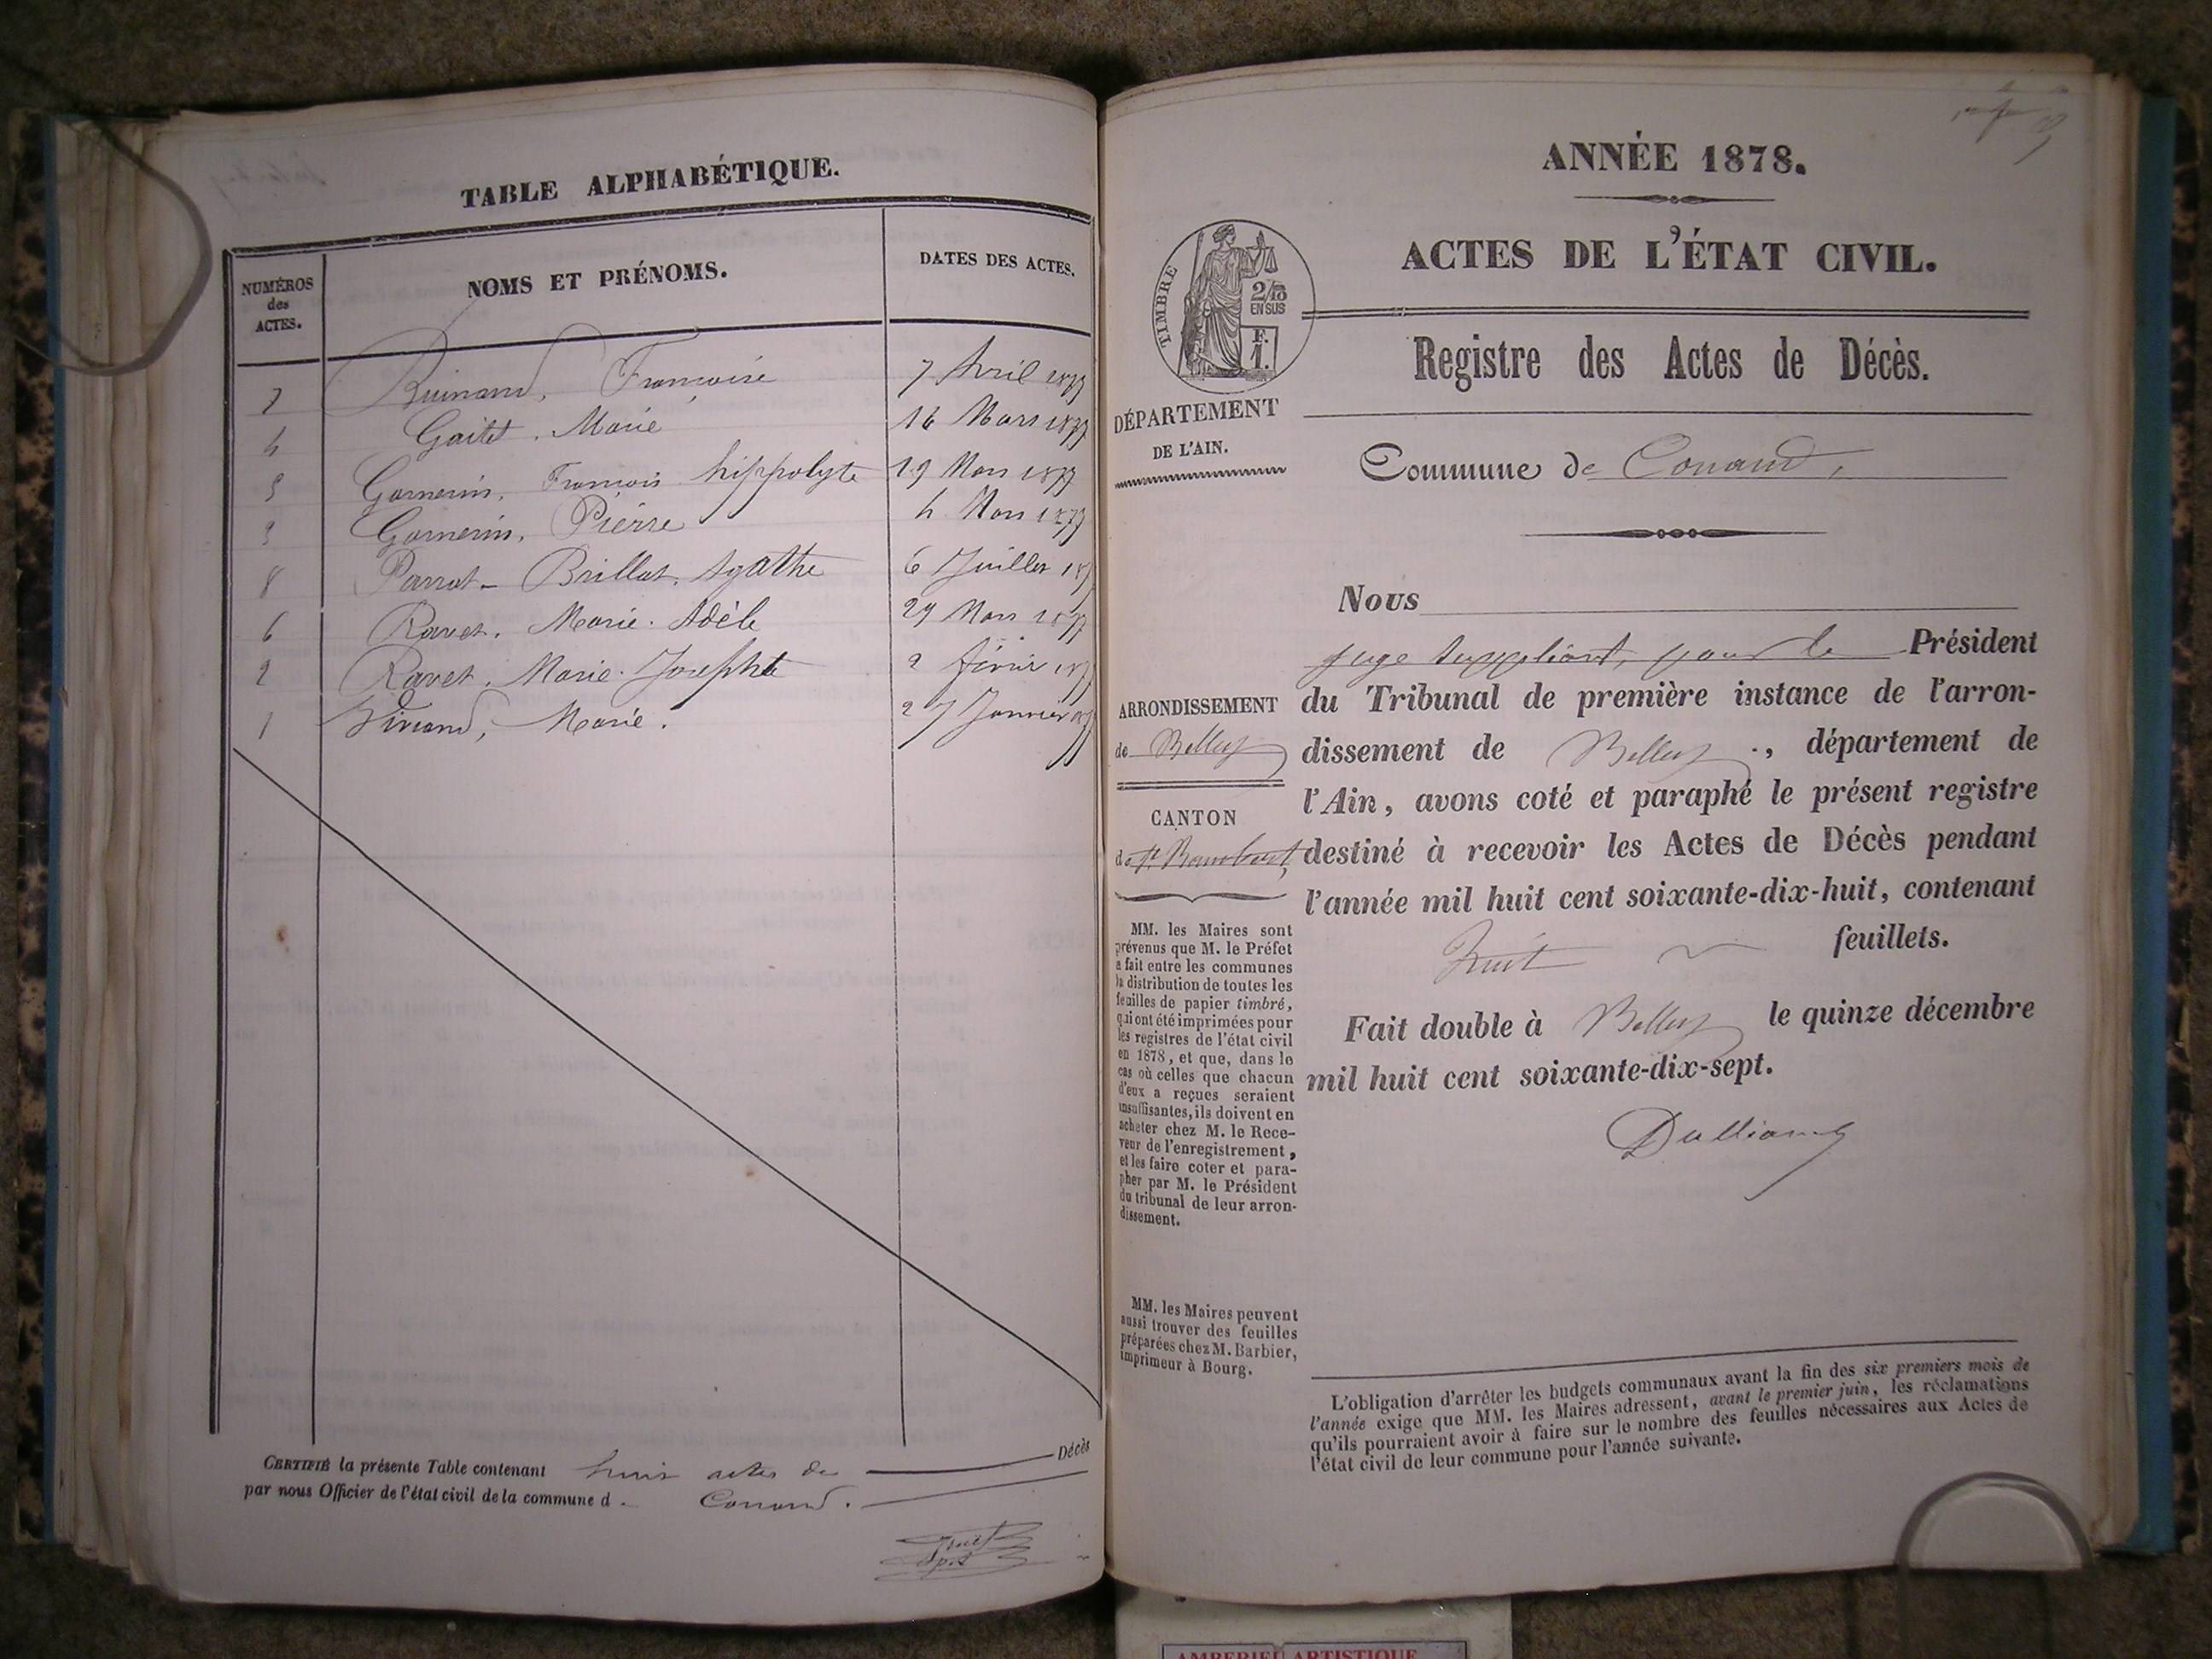 TABLE ALPHABÉTIQUE.
NUMÉROS
des
ACTES.
NOMS ET PRÉNOMS.
DATES DES ACTES.
7 Françoise 7 Avril 1877
4 Gaitet, Marie 16 Mars 1877
5 Garnerin, François hippolyte 19 Mars 1877
3 Garnerin, Pierre 4 Mars 1877
8 Parrat-Brillat, Agathe 6 Juillet 18
6 Ravet, Marie-Adèle 29 Mars 1877
2 Ravet, Marie-Josephte 2 février 187
1 Marie. 27 Janvier
CERTIFIÉ la présente Table contenant huit actes de Décès
par nous Officier de l'état civil de la commune d Conand.
ANNÉE 1878.
ACTES DE L'ÉTAT CIVIL.
TIMBRE
2/10
EN SUS
F.
1.
Registre des Actes de Décès.
DÉPARTEMENT
DE L'AIN.
Commune de Conand,
Nous
juge suppléant, pour le Président
du Tribunal de première instance de l'arron-
dissement de Belley, département de
l'Ain, avons coté et paraphé le présent registre
destiné à recevoir les Actes de Décès pendant
l'année mil huit cent soixante-dix-huit, contenant
huit feuillets.
Fait double à Belley le quinze décembre
mil huit cent soixante-dix-sept.
ARRONDISSEMENT
de Belley
CANTON
de St Rambert,
MM. les Maires sont
prévenus que M. le Préfet
a fait entre les communes
la distribution de toutes les
feuilles de papier timbré,
qui ont été imprimées pour
les registres de l'état civil
en 1878, et que, dans le
cas où celles que chacun
d'eux a reçues seraient
insuffisantes, ils doivent en
acheter chez M. le Rece-
veur de l'enregistrement,
et les faire coter et para-
pher par M. le Président
du tribunal de leur arron-
dissement.
MM. les Maires peuvent
aussi trouver des feuilles
préparées chez M. Barbier,
imprimeur à Bourg.
L'obligation d'arrêter les budgets communaux avant la fin des six premiers mois de
l'année exige que MM. les Maires adressent, avant le premier juin, les réclamations
qu'ils pourraient avoir à faire sur le nombre des feuilles nécessaires aux Actes de
l'état civil de leur commune pour l'année suivante.
AMBERIEU ARTISTIQUE